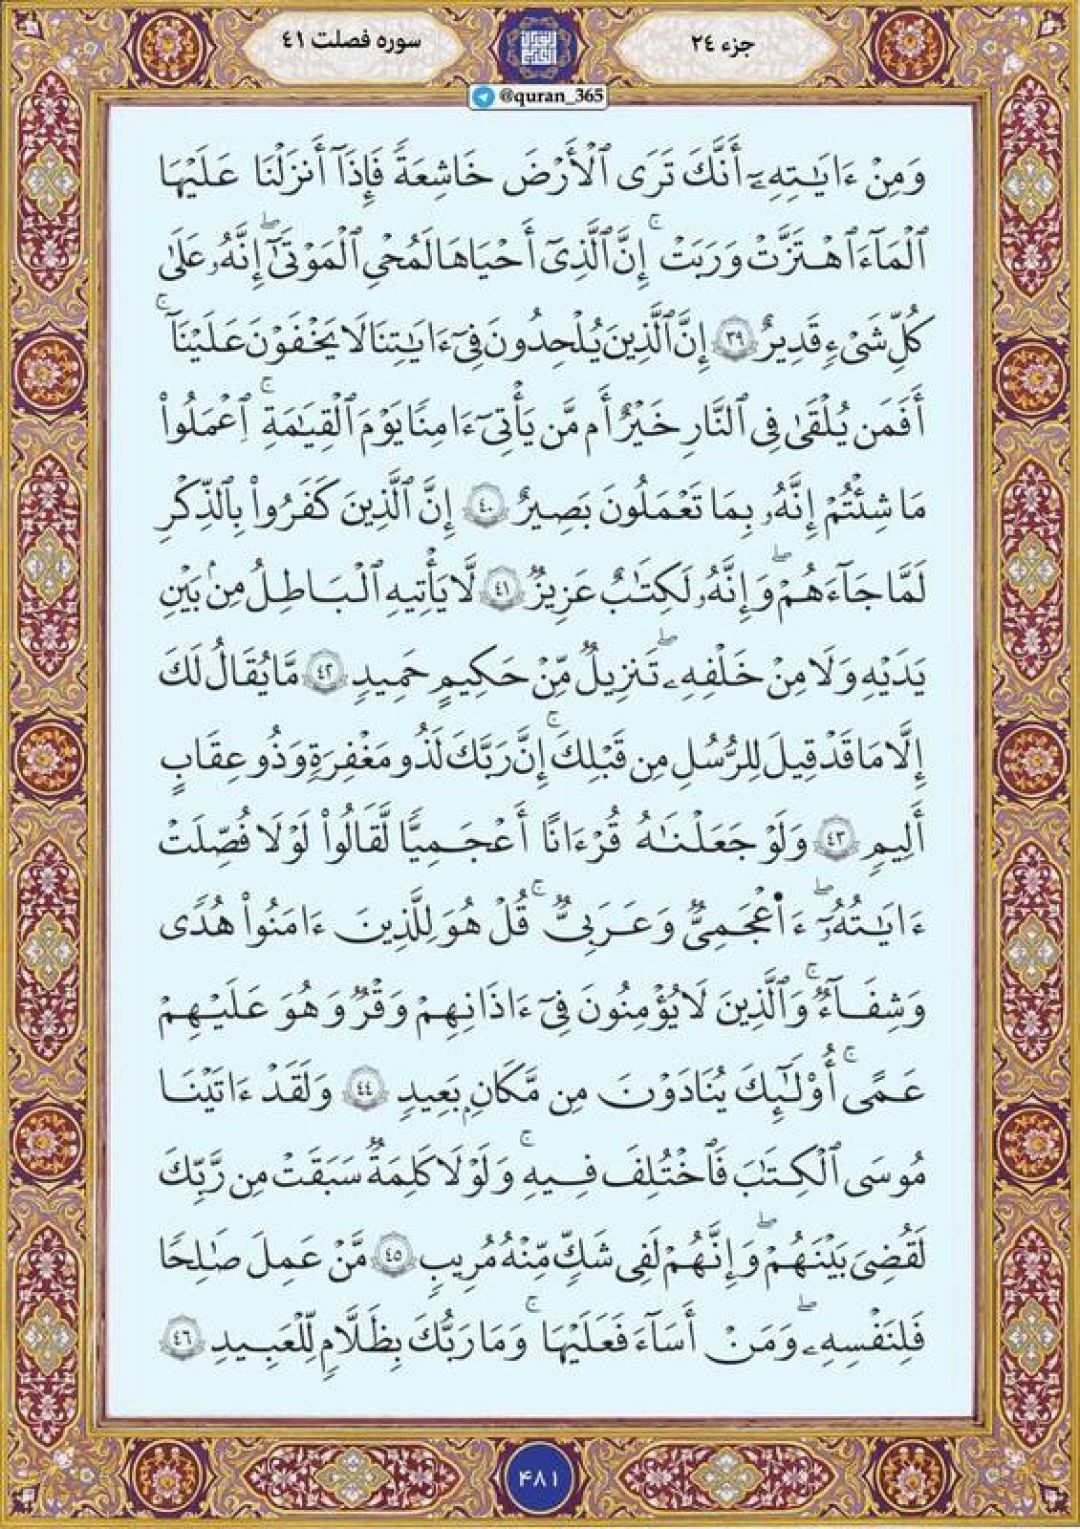 سوره فصلت ٤١
جزء ٢٤
@quran_365
وَمِنْ ءَايَـٰتِهِۦٓ أَنَّكَ تَرَى ٱلْأَرْضَ خَـٰشِعَةً فَإِذَآ أَنزَلْنَا عَلَيْهَا
ٱلْمَآءَ ٱهْتَزَّتْ وَرَبَتْ ۚ إِنَّ ٱلَّذِىٓ أَحْيَاهَا لَمُحْىِ ٱلْمَوْتَىٰٓ ۖ إِنَّهُۥ عَلَىٰ
كُلِّ شَىْءٍ قَدِيرٌ ٣٩ إِنَّ ٱلَّذِينَ يُلْحِدُونَ فِىٓ ءَايَـٰتِنَا لَا يَخْفَوْنَ عَلَيْنَآ ۗ
أَفَمَن يُلْقَىٰ فِى ٱلنَّارِ خَيْرٌ أَم مَّن يَأْتِىٓ ءَامِنًا يَوْمَ ٱلْقِيَـٰمَةِ ۚ ٱعْمَلُوا۟
مَا شِئْتُمْ إِنَّهُۥ بِمَا تَعْمَلُونَ بَصِيرٌ ٤٠ إِنَّ ٱلَّذِينَ كَفَرُوا۟ بِٱلذِّكْرِ
لَمَّا جَآءَهُمْ ۖ وَإِنَّهُۥ لَكِتَـٰبٌ عَزِيزٌ ٤١ لَّا يَأْتِيهِ ٱلْبَـٰطِلُ مِنۢ بَيْنِ
يَدَيْهِ وَلَا مِنْ خَلْفِهِۦ ۖ تَنزِيلٌ مِّنْ حَكِيمٍ حَمِيدٍ ٤٢ مَّا يُقَالُ لَكَ
إِلَّا مَا قَدْ قِيلَ لِلرُّسُلِ مِن قَبْلِكَ ۚ إِنَّ رَبَّكَ لَذُو مَغْفِرَةٍ وَذُو عِقَابٍ
أَلِيمٍ ٤٣ وَلَوْ جَعَلْنَـٰهُ قُرْءَانًا أَعْجَمِيًّا لَّقَالُوا۟ لَوْلَا فُصِّلَتْ
ءَايَـٰتُهُۥٓ ۖ ءَا۬عْجَمِىٌّ وَعَرَبِىٌّ ۗ قُلْ هُوَ لِلَّذِينَ ءَامَنُوا۟ هُدًى
وَشِفَآءٌ ۖ وَٱلَّذِينَ لَا يُؤْمِنُونَ فِىٓ ءَاذَانِهِمْ وَقْرٌ وَهُوَ عَلَيْهِمْ
عَمًى ۚ أُو۟لَـٰٓئِكَ يُنَادَوْنَ مِن مَّكَانٍۭ بَعِيدٍ ٤٤ وَلَقَدْ ءَاتَيْنَا
مُوسَى ٱلْكِتَـٰبَ فَٱخْتُلِفَ فِيهِ ۗ وَلَوْلَا كَلِمَةٌ سَبَقَتْ مِن رَّبِّكَ
لَقُضِىَ بَيْنَهُمْ ۚ وَإِنَّهُمْ لَفِى شَكٍّ مِّنْهُ مُرِيبٍ ٤٥ مَّنْ عَمِلَ صَـٰلِحًا
فَلِنَفْسِهِۦ ۖ وَمَنْ أَسَآءَ فَعَلَيْهَا ۗ وَمَا رَبُّكَ بِظَلَّـٰمٍ لِّلْعَبِيدِ ٤٦
۴۸۱